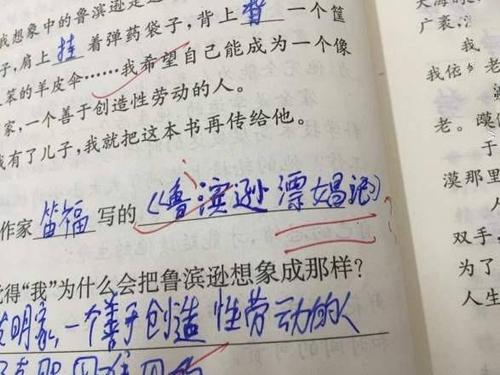 想象中的鲁滨逊是
子，肩上挂着弹药袋子，背上背一个筐
笨的羊皮伞……我希望自己能成为一个像
家，一个善于创造性劳动的人。
我有了儿子，我就把这本书再传给他。
作家笛福写的《鲁滨逊漂娼记》
觉得“我”为什么会把鲁滨逊想象成那样？
发明家，一个善于创造性劳动的人
广袤，
我
我依
老。漠
漠那里
双手，
为了
人生